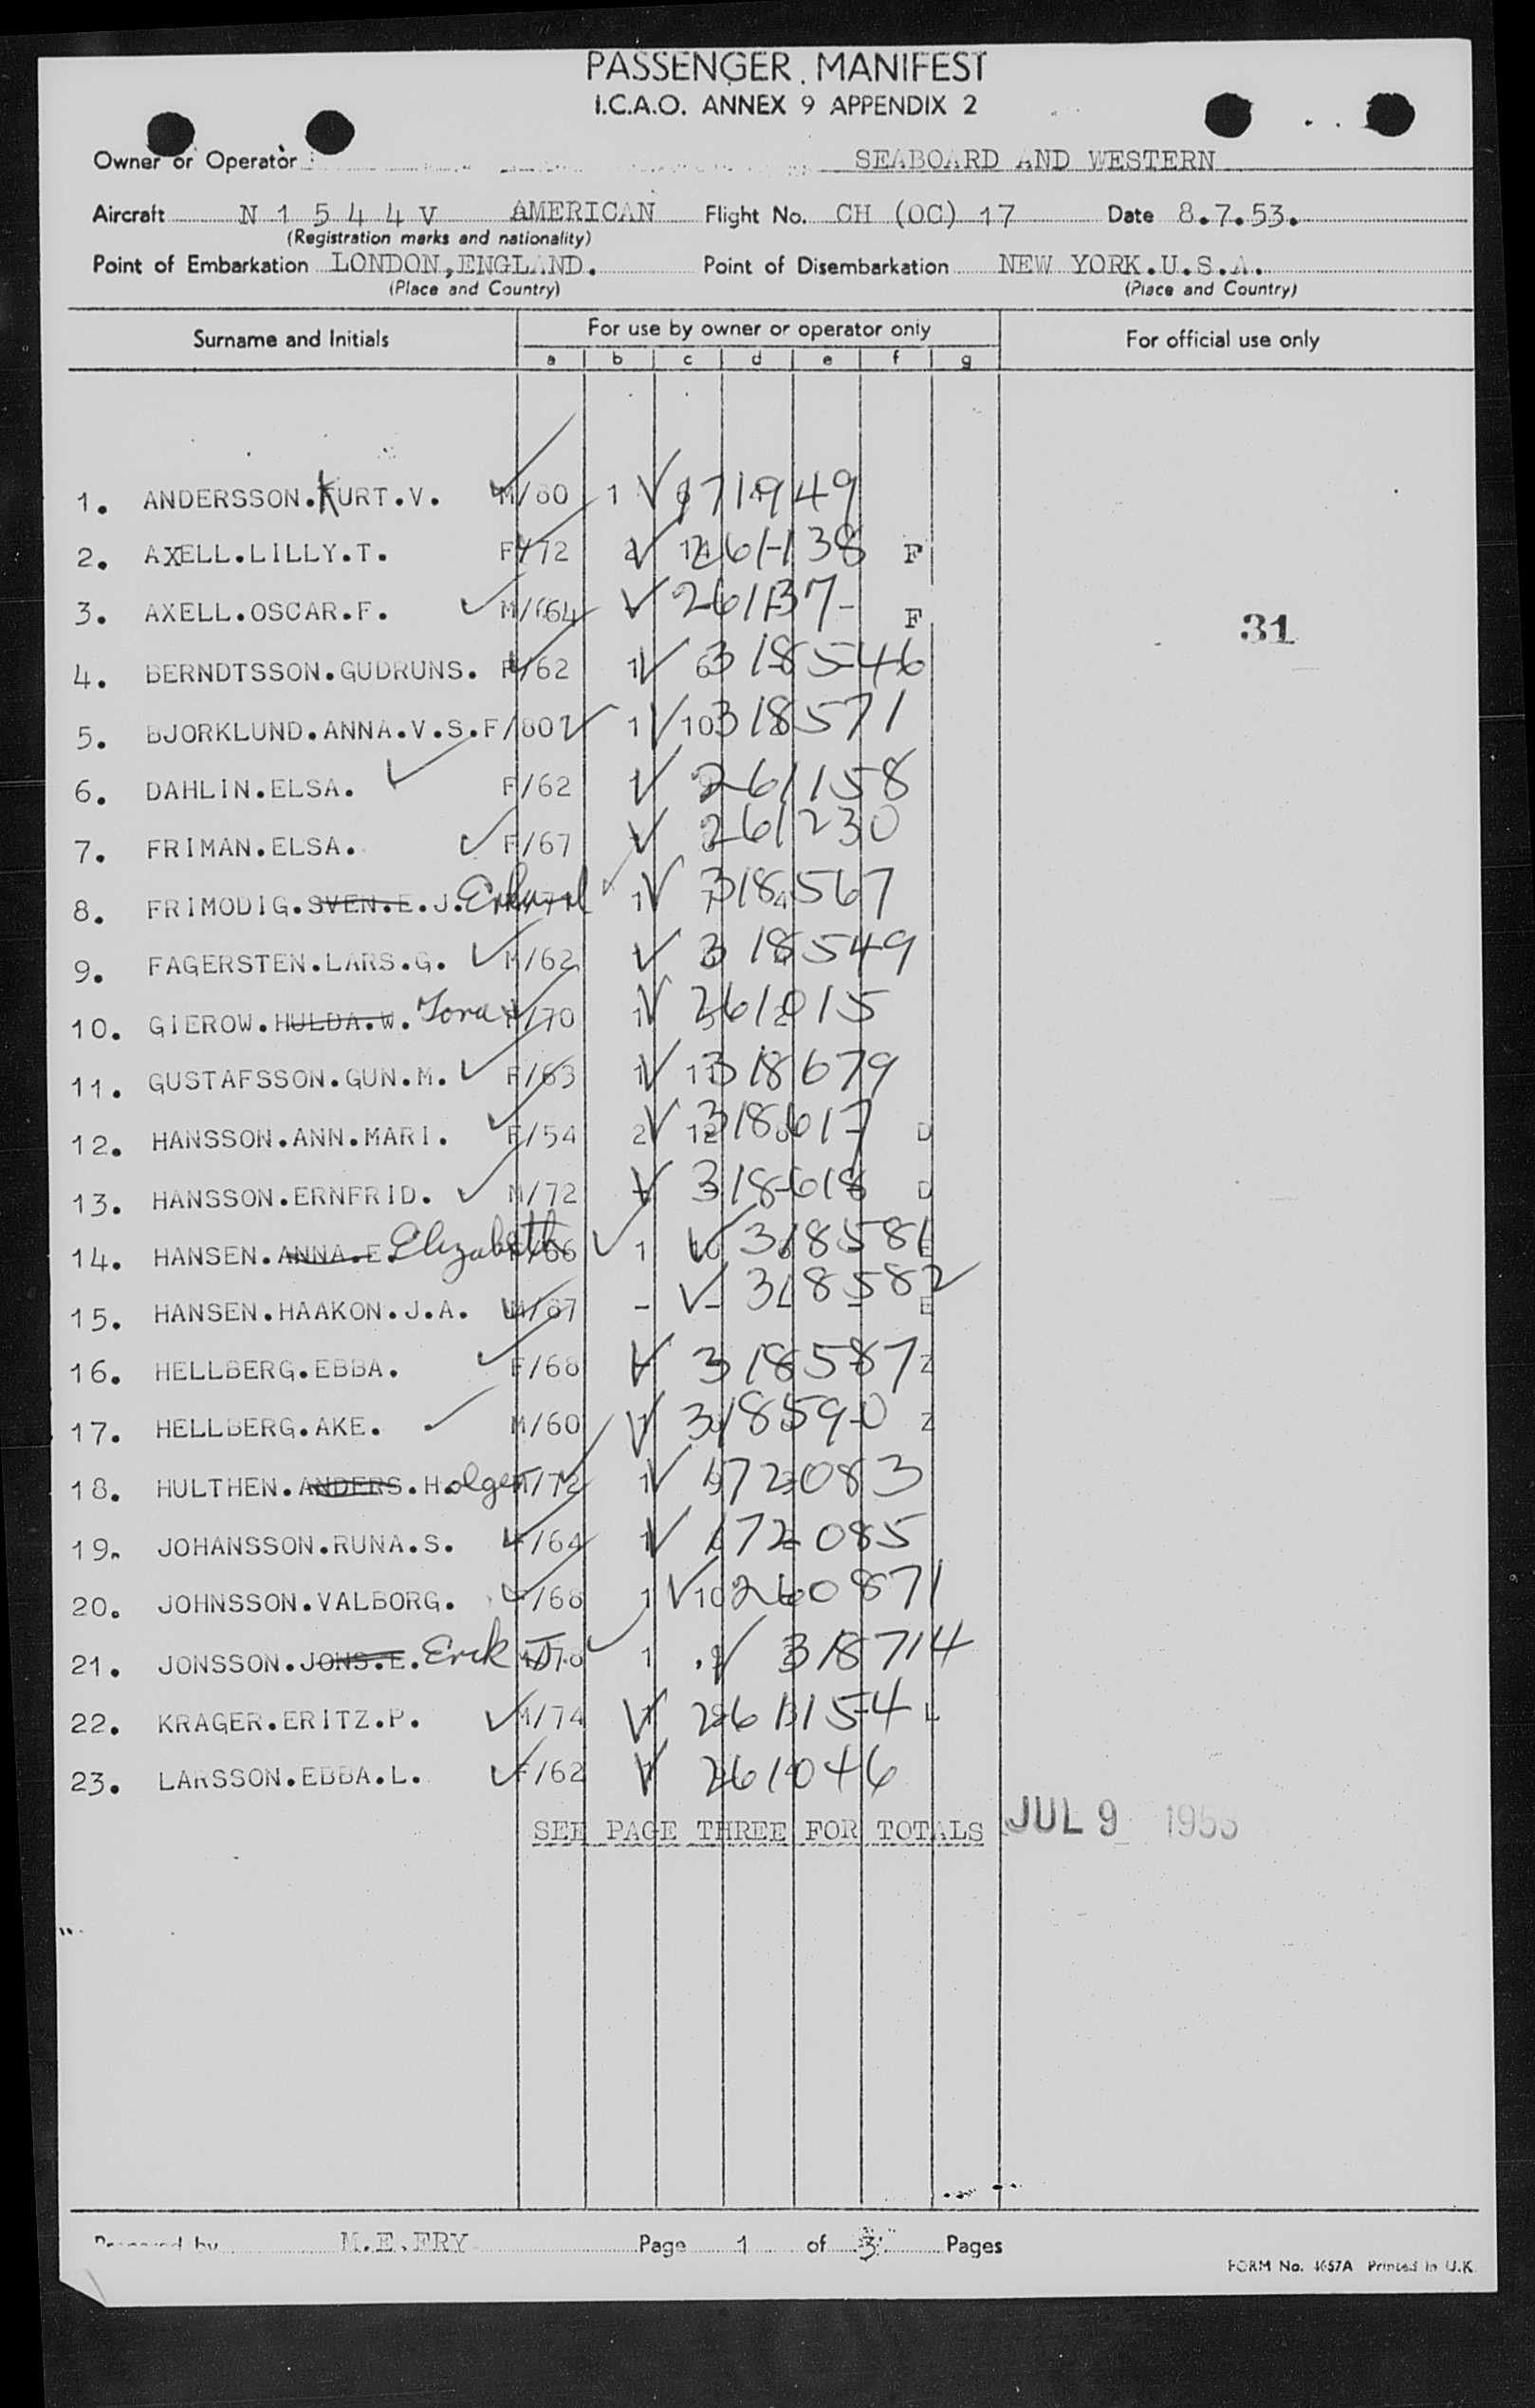 PASSENGER MANIFEST
I.C.A.O. ANNEX 9 APPENDIX 2
Owner or Operator SEABOARD AND WESTERN
Aircraft N 1 5 4 4 V AMERICAN Flight No. CH (OC) 17 Date 8.7.53.
(Registration marks and nationality)
Point of Embarkation LONDON, ENGLAND. Point of Disembarkation NEW YORK.U.S.A.
(Place and Country) (Place and Country)
Surname and Initials For use by owner or operator only For official use only
a b c d e f g
1. ANDERSSON.KURT.V. M/80 1 171949
2. AXELL.LILLY.T. F/72 2 261138 F
3. AXELL.OSCAR.F. M/64 261137 F
31
4. BERNDTSSON.GUDRUNS. F/62 1 318546
5. BJORKLUND.ANNA.V.S. F/80 1 10 318571
6. DAHLIN.ELSA. F/62 1 261158
7. FRIMAN.ELSA. F/67 261230
8. FRIMODIG.SVEN.E.J. 1 318567
9. FAGERSTEN.LARS.G. M/62 318549
10. GIEROW.HULDA.W. Tora F/70 1 261015
11. GUSTAFSSON.GUN.M. F/63 1 318679
12. HANSSON.ANN.MARI. F/54 2 12 318617 D
13. HANSSON.ERNFRID. M/72 318618 D
14. HANSEN.ANNA.E. Elizabeth F/66 1 10 318581 E
15. HANSEN.HAAKON.J.A. M/87 - - 318582 E
16. HELLBERG.EBBA. F/68 318587 Z
17. HELLBERG.AKE. M/60 318590 Z
18. HULTHEN.ANDERS.Holger M/72 1 172083
19. JOHANSSON.RUNA.S. F/64 1 172085
20. JOHNSSON.VALBORG. F/68 1 10 260871
21. JONSSON.JONS.E. Erik J. M/78 1 318714
22. KRAGER.ERITZ.P. M/74 261154 L
23. LARSSON.EBBA.L. F/62 261046
SEE PAGE THREE FOR TOTALS JUL 9 1953
Prepared by M.E.FRY Page 1 of 3 Pages
FORM No. 4657A Printed in U.K.